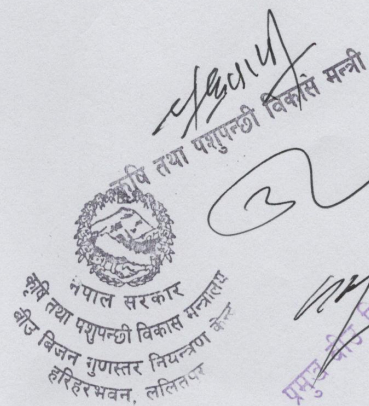 कृषि तथा पशुपन्छी विकास मन्त्री
नेपाल सरकार
कृषि तथा पशुपन्छी विकास मन्त्रालय
बीउ बिजन गुणस्तर नियन्त्रण केन्द्र
हरिहरभवन, ललितपुर
प्रमुख बीउ